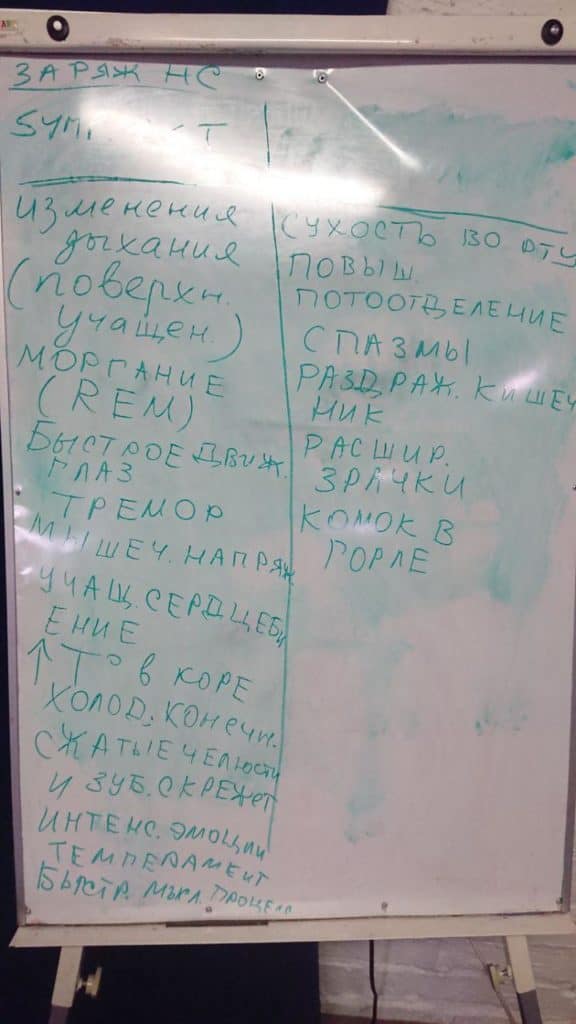 ЗАРЯЖ НС
изменения
дыхания
(поверхн.
учащен.)
МОРГАНИЕ
(REM)
БЫСТРОЕ ДВИЖ.
ГЛАЗ
ТРЕМОР
МЫШЕЧ. НАПРЯЖ
УЧАЩ. СЕРДЦЕБИ
ЕНИЕ
↑ Т° в КОРЕ
ХОЛОД. КОНЕЧН.
СЖАТЫЕ ЧЕЛЮСТИ
И ЗУБ. СКРЕЖЕТ
ИНТЕНС. ЭМОЦИИ
ТЕМПЕРАМЕНТ
БЫСТР. МЫСЛ. ПРОЦЕСС
СУХОСТЬ ВО РТУ
ПОВЫШ.
ПОТООТДЕЛЕНИЕ
СПАЗМЫ
РАЗДРАЖ. КИШЕЧ
НИК
РАСШИР.
ЗРАЧКИ
КОМОК В
ГОРЛЕ